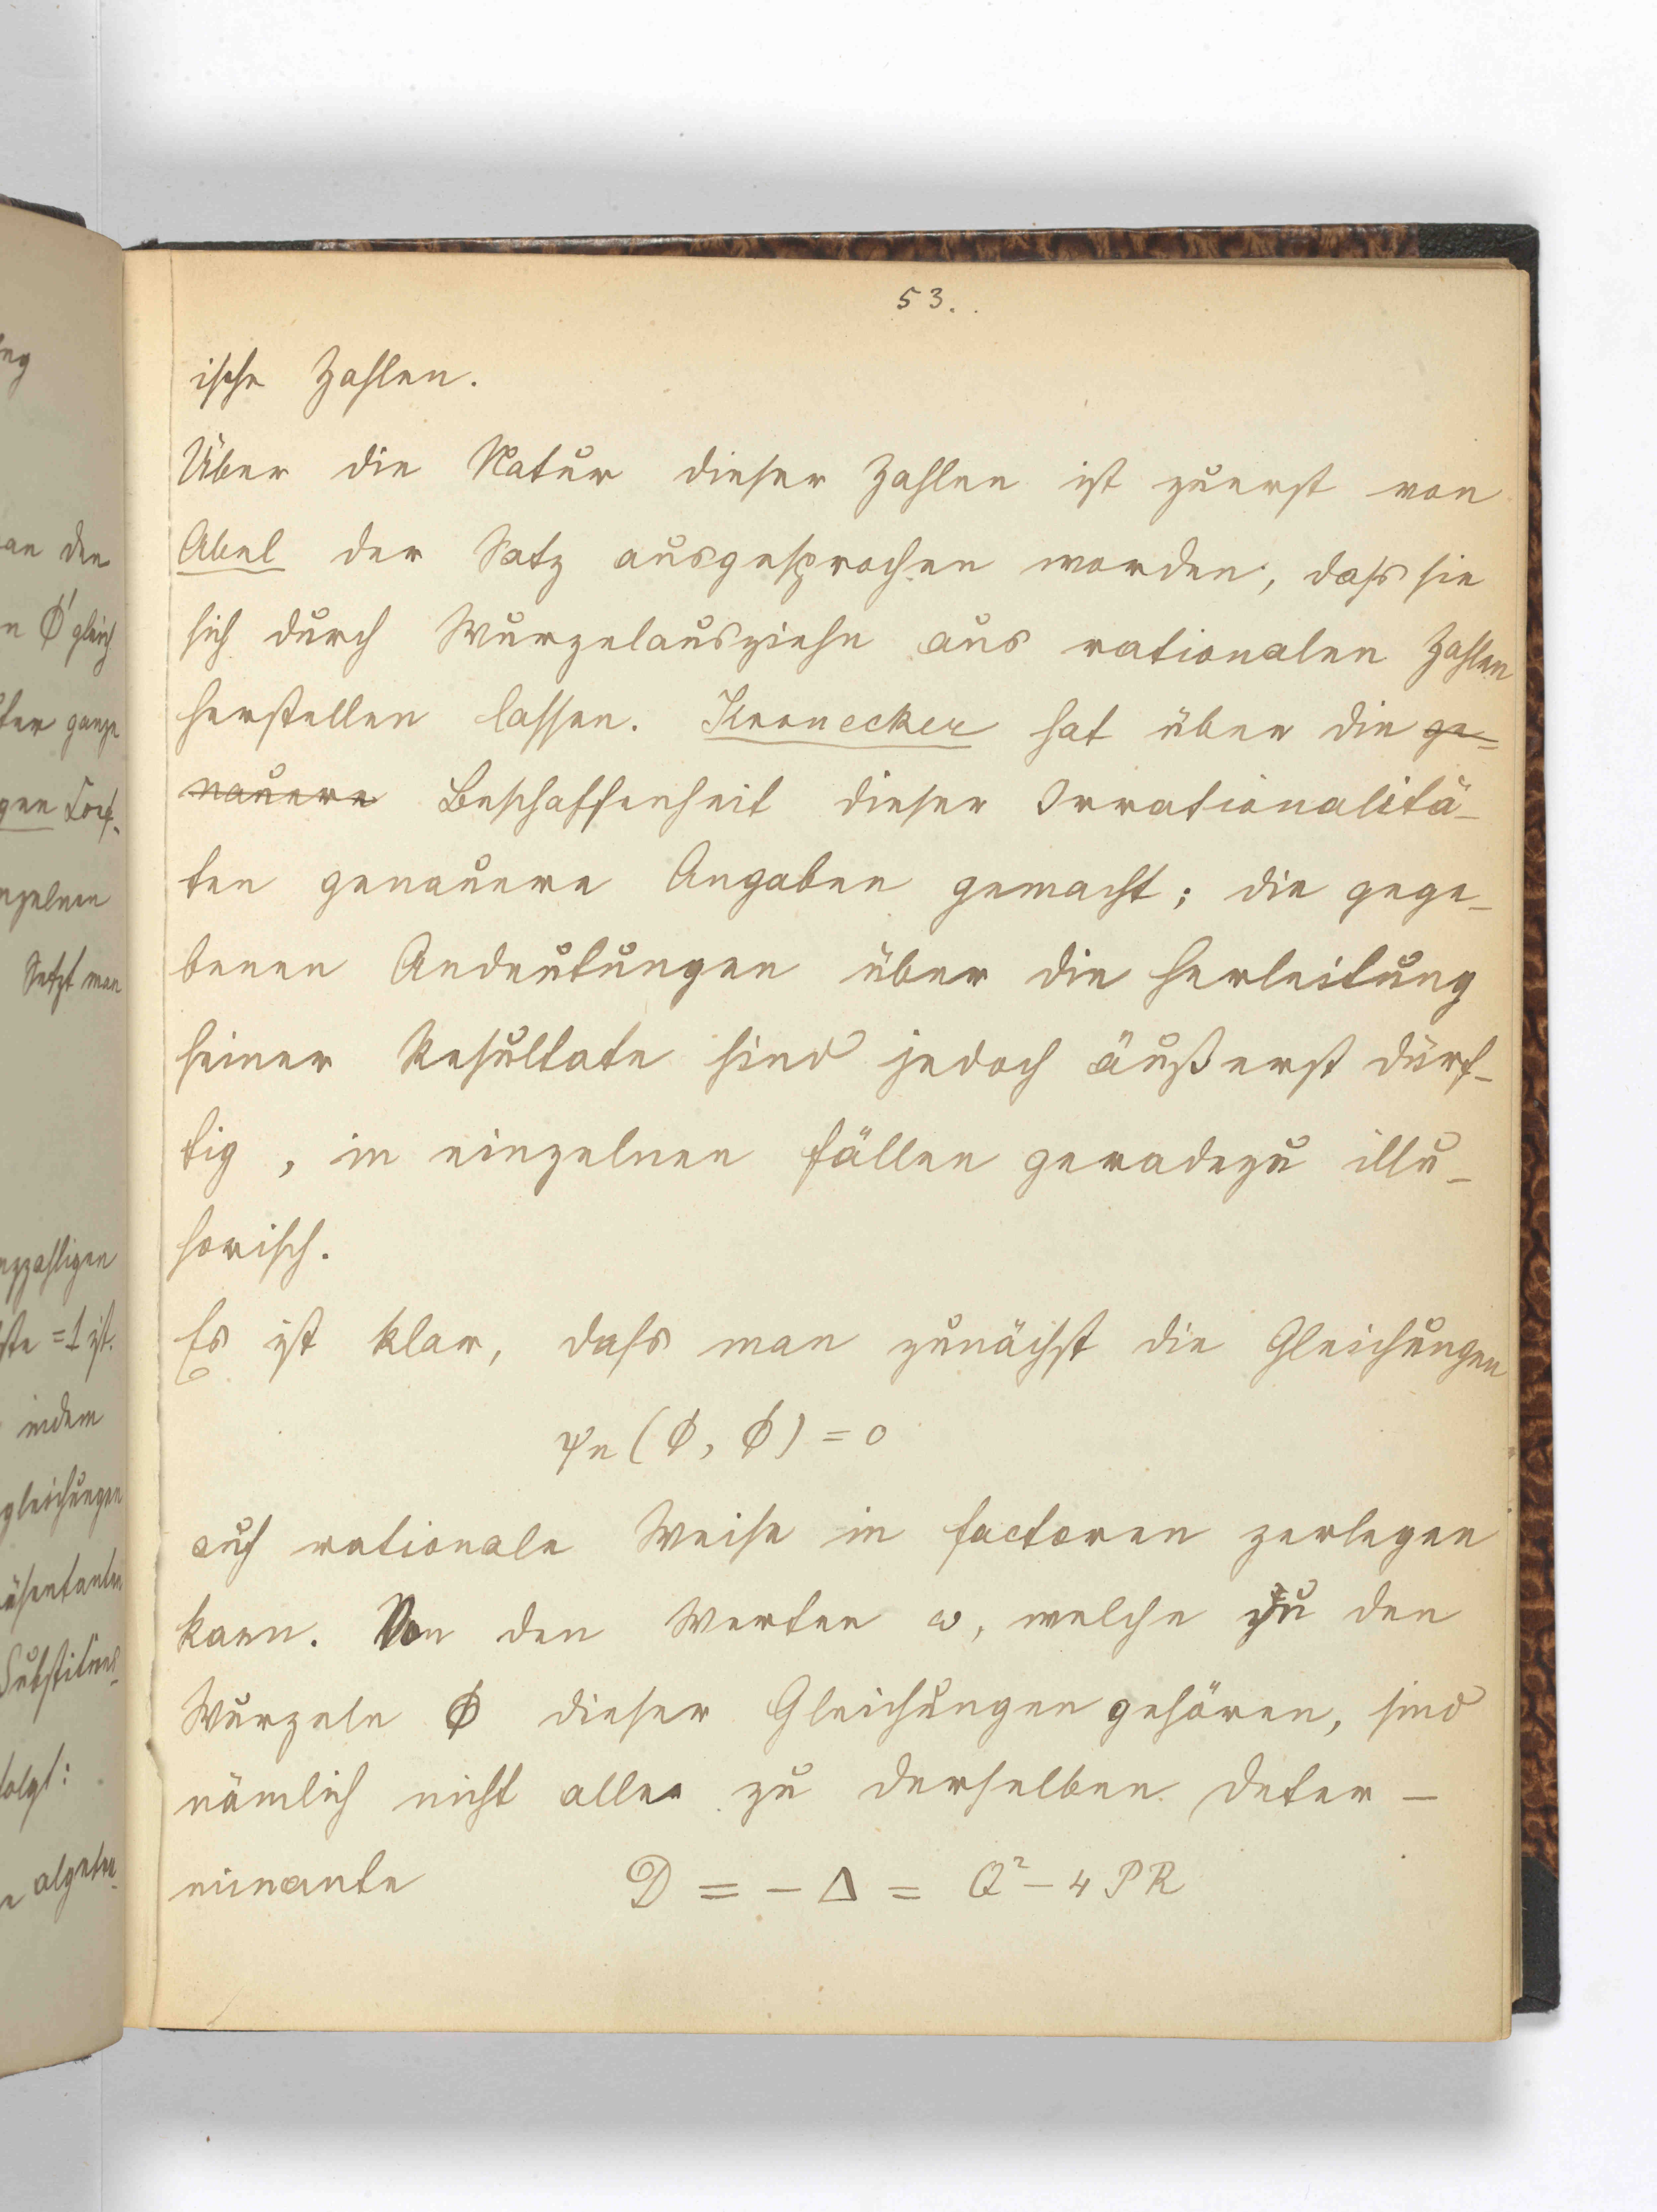 53.
ische Zahlen.
Über die Natur dieser Zahlen ist zuerst von
Abel der Satz ausgesprochen worden, dass sie
sich durch Wurzelausziehn aus rationalen Zahlen
herstellen lassen. Kronecker hat über die ge=
nauere Beschaffenheit dieser Irrationalitä-
ten genauere Angaben gemacht; die gege-
benen Andeutungen über die Herleitung
seiner Resultate sind jedoch äußerst dürf-
tig, in einzelnen Fällen geradezu illu-
sorisch.
Es ist klar, dass man zunächst die Gleichungen
ψn (ϕ, ϕ) = 0
auf rationale Weise in Factoren zerlegen
kann. Von den Werten ω, welche zu den
Wurzeln ϕ dieser Gleichungen gehören, sind
nämlich nicht alle zu derselben Deter-
minante D = - Δ = Q² - 4 P R
an den
n ϕ' gleich
ter ganze
gen Coef-
nzelnen
Setzt man
nzzahligen
ste = 1 ist.
indem
gleichungen
äsentanten
Substitutions-
folgt:
algebra-